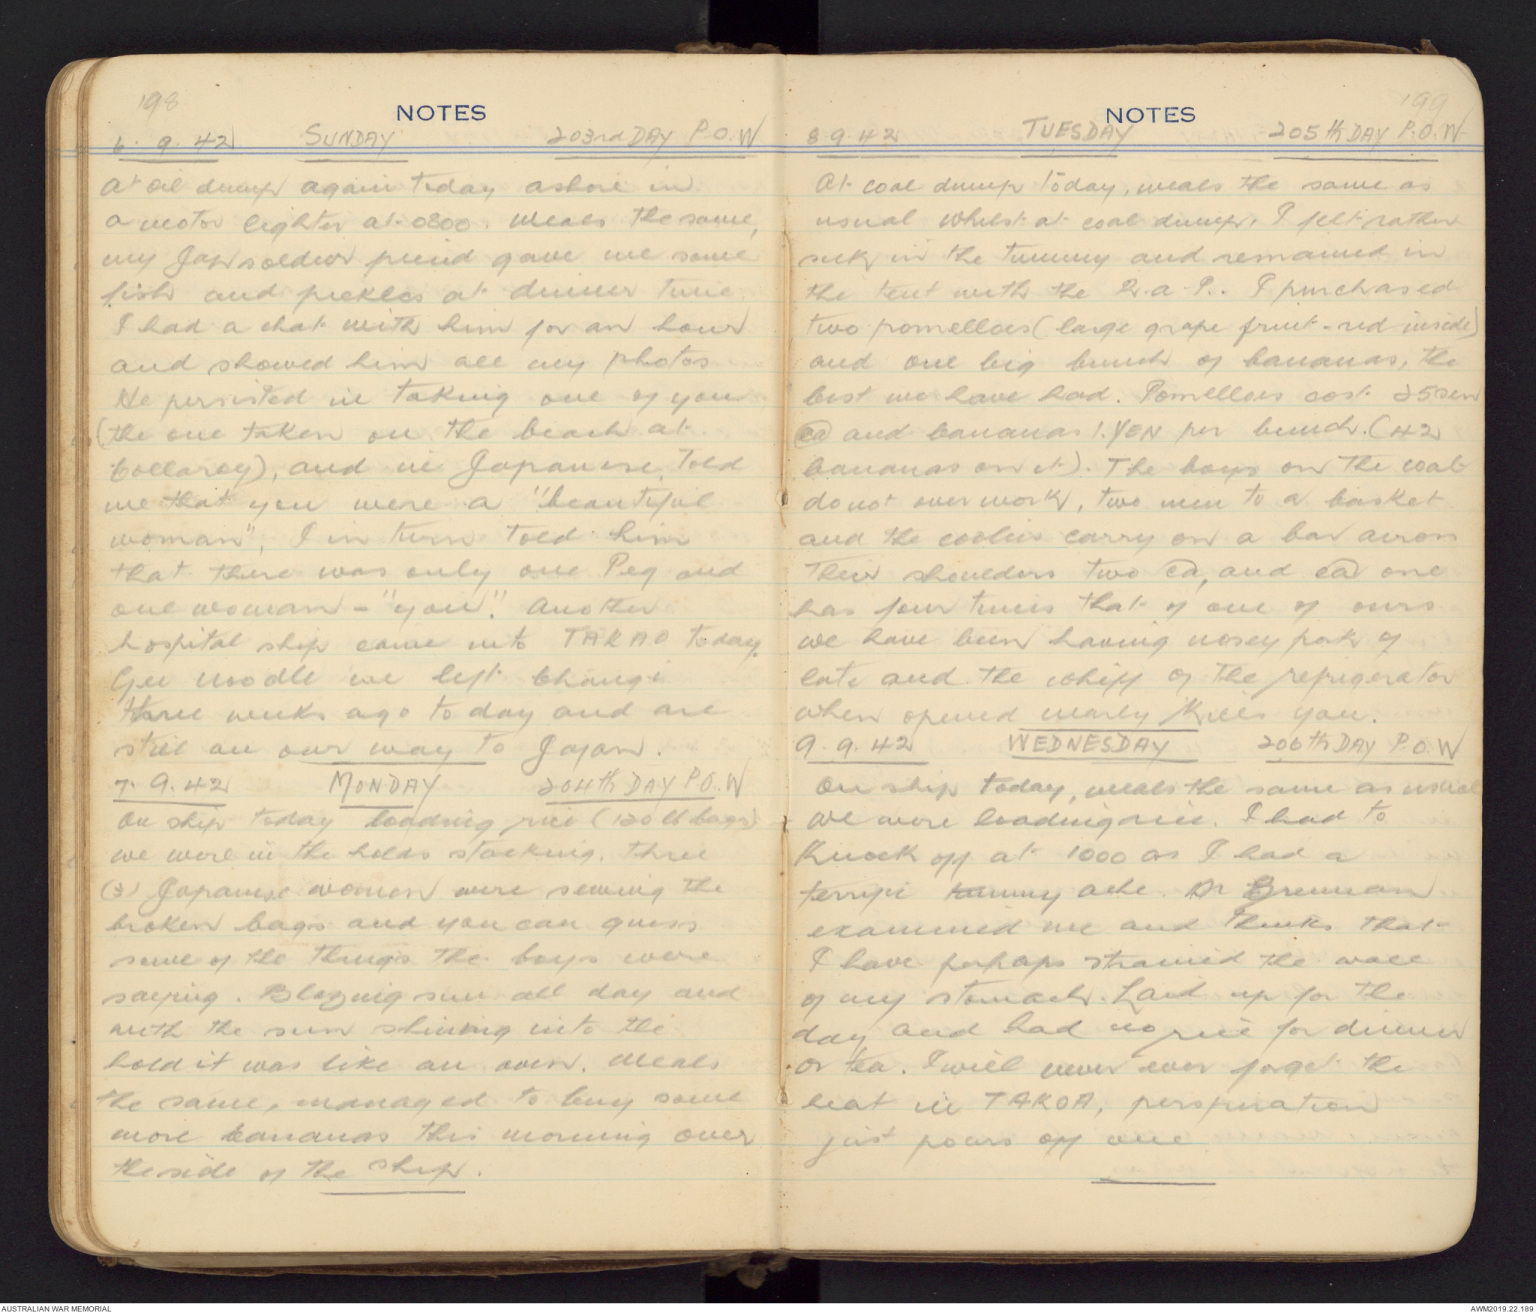 198
NOTES
6. 9. 42 SUNDAY 203rd DAY P.O.W
At oil dump again today ashore in
a motor lighter at 0800. Meals the same,
my Jap soldier friend gave me some
fish and pickles at dinner time.
I had a chat with him for an hour
and showed him all my photos
He persisted in taking one of you
(the one taken on the beach at
Collaroy), and in Japanese told
me that you were a "beautiful
woman", I in turn told him
that there was only one Peg and
one woman - "you". Another
hospital ship came into TAKAO today.
Gee Noodle we left Changi
three weeks ago today and are
still on our way to Japan.
7. 9. 42 MONDAY 204th DAY P.O.W
On ship today loading rice (120 lb bags)
we were in the holds stacking. Three
(3) Japanese women were sewing the
broken bags and you can guess
some of the things the boys were
saying. Blazing sun all day and
with the sun shining into the
hold it was like an oven. Meals
the same, managed to buy some
more bananas this morning over
the side of the ship.
199
NOTES
8 9. 42 TUESDAY 205th DAY P.O.W
At coal dump today, meals the same as
usual whilst at coal dump, I felt rather
sick in the tummy and remained in
the tent with the R.A.P.. I purchased
two pomelloes (large grape fruit - red inside)
and one big bunch of bananas, the
best we have had. Pomelloes cost 25 sen
ea and bananas 1. YEN per bunch. (42
bananas on it). The boys on the coal
do not overwork, two men to a basket
and the coolies carry on a bar across
their shoulders two ea, and ea one
has four times that of one of ours
we have been having nosey pork of
late and the whiff of the refrigerator
when opened nearly kills you.
9. 9. 42 WEDNESDAY 206th DAY P.O.W
On ship today, meals the same as usual
we were loading rice. I had to
knock off at 1000 as I had a
terrific tummy ache. Dr Brennan
examined me and thinks that
I have perhaps strained the wall
of my stomach. Laid up for the
day and had no rice for dinner
or tea. I will never ever forget the
heat in TAKOA, perspiration
just pours off one
AUSTRALIAN WAR MEMORIAL
AWM2019.22.189